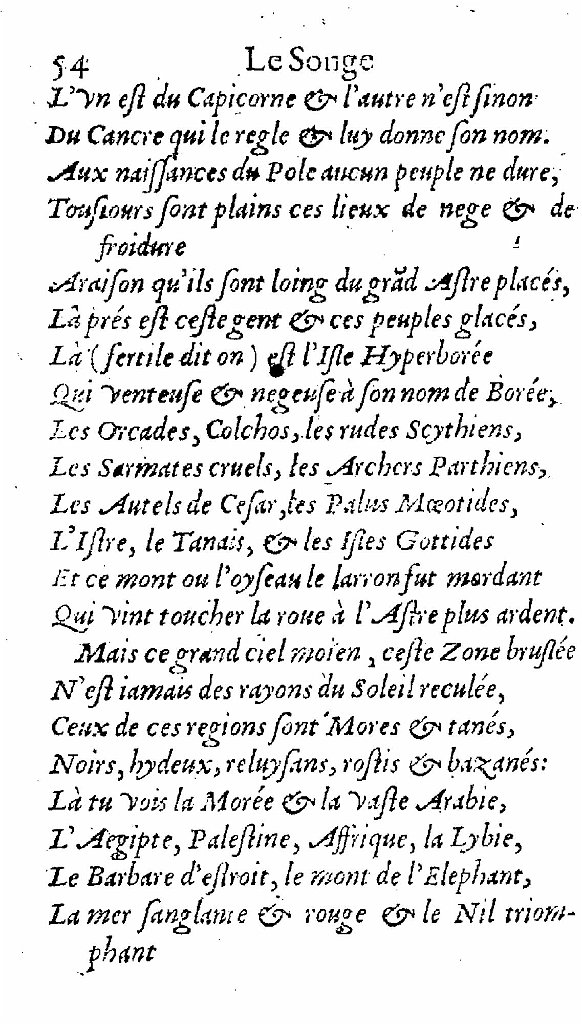 54 Le Songe
L'vn eſt du Capicorne & l'autre n'eſt ſinon
Du Cancre qui le regle & luy donne ſon nom.
Aux naiſſances du Pole aucun peuple ne dure,
Touſiours ſont plains ces lieux de nege & de
froidure
Araiſon qu'ils ſont loing du grãd Aſtre placés,
Là prés eſt ceſte gent & ces peuples glacés,
Là (fertile dit on) eſt l'Iſle Hyperborée
Qui venteuſe & negeuſe à ſon nom de Borée,
Les Orcades, Colchos, les rudes Scythiens,
Les Sarmates cruels, les Archers Parthiens,
Les Autels de Ceſar, les Palus Mœotides,
L'Iſtre, le Tanais, & les Iſles Gottides
Et ce mont ou l'oyſeau le larron fut mordant
Qui vint toucher la roue à l'Aſtre plus ardent.
Mais ce grand ciel moien, ceſte Zone bruſlée
N'eſt iamais des rayons du Soleil reculée,
Ceux de ces regions ſont Mores & tanés,
Noirs, hydeux, reluyſans, roſtis & bazanés:
Là tu vois la Morée & la vaſte Arabie,
L'Aegipte, Paleſtine, Affrique, la Lybie,
Le Barbare d'eſtroit, le mont de l'Elephant,
La mer ſanglante & rouge & le Nil triom-
phant